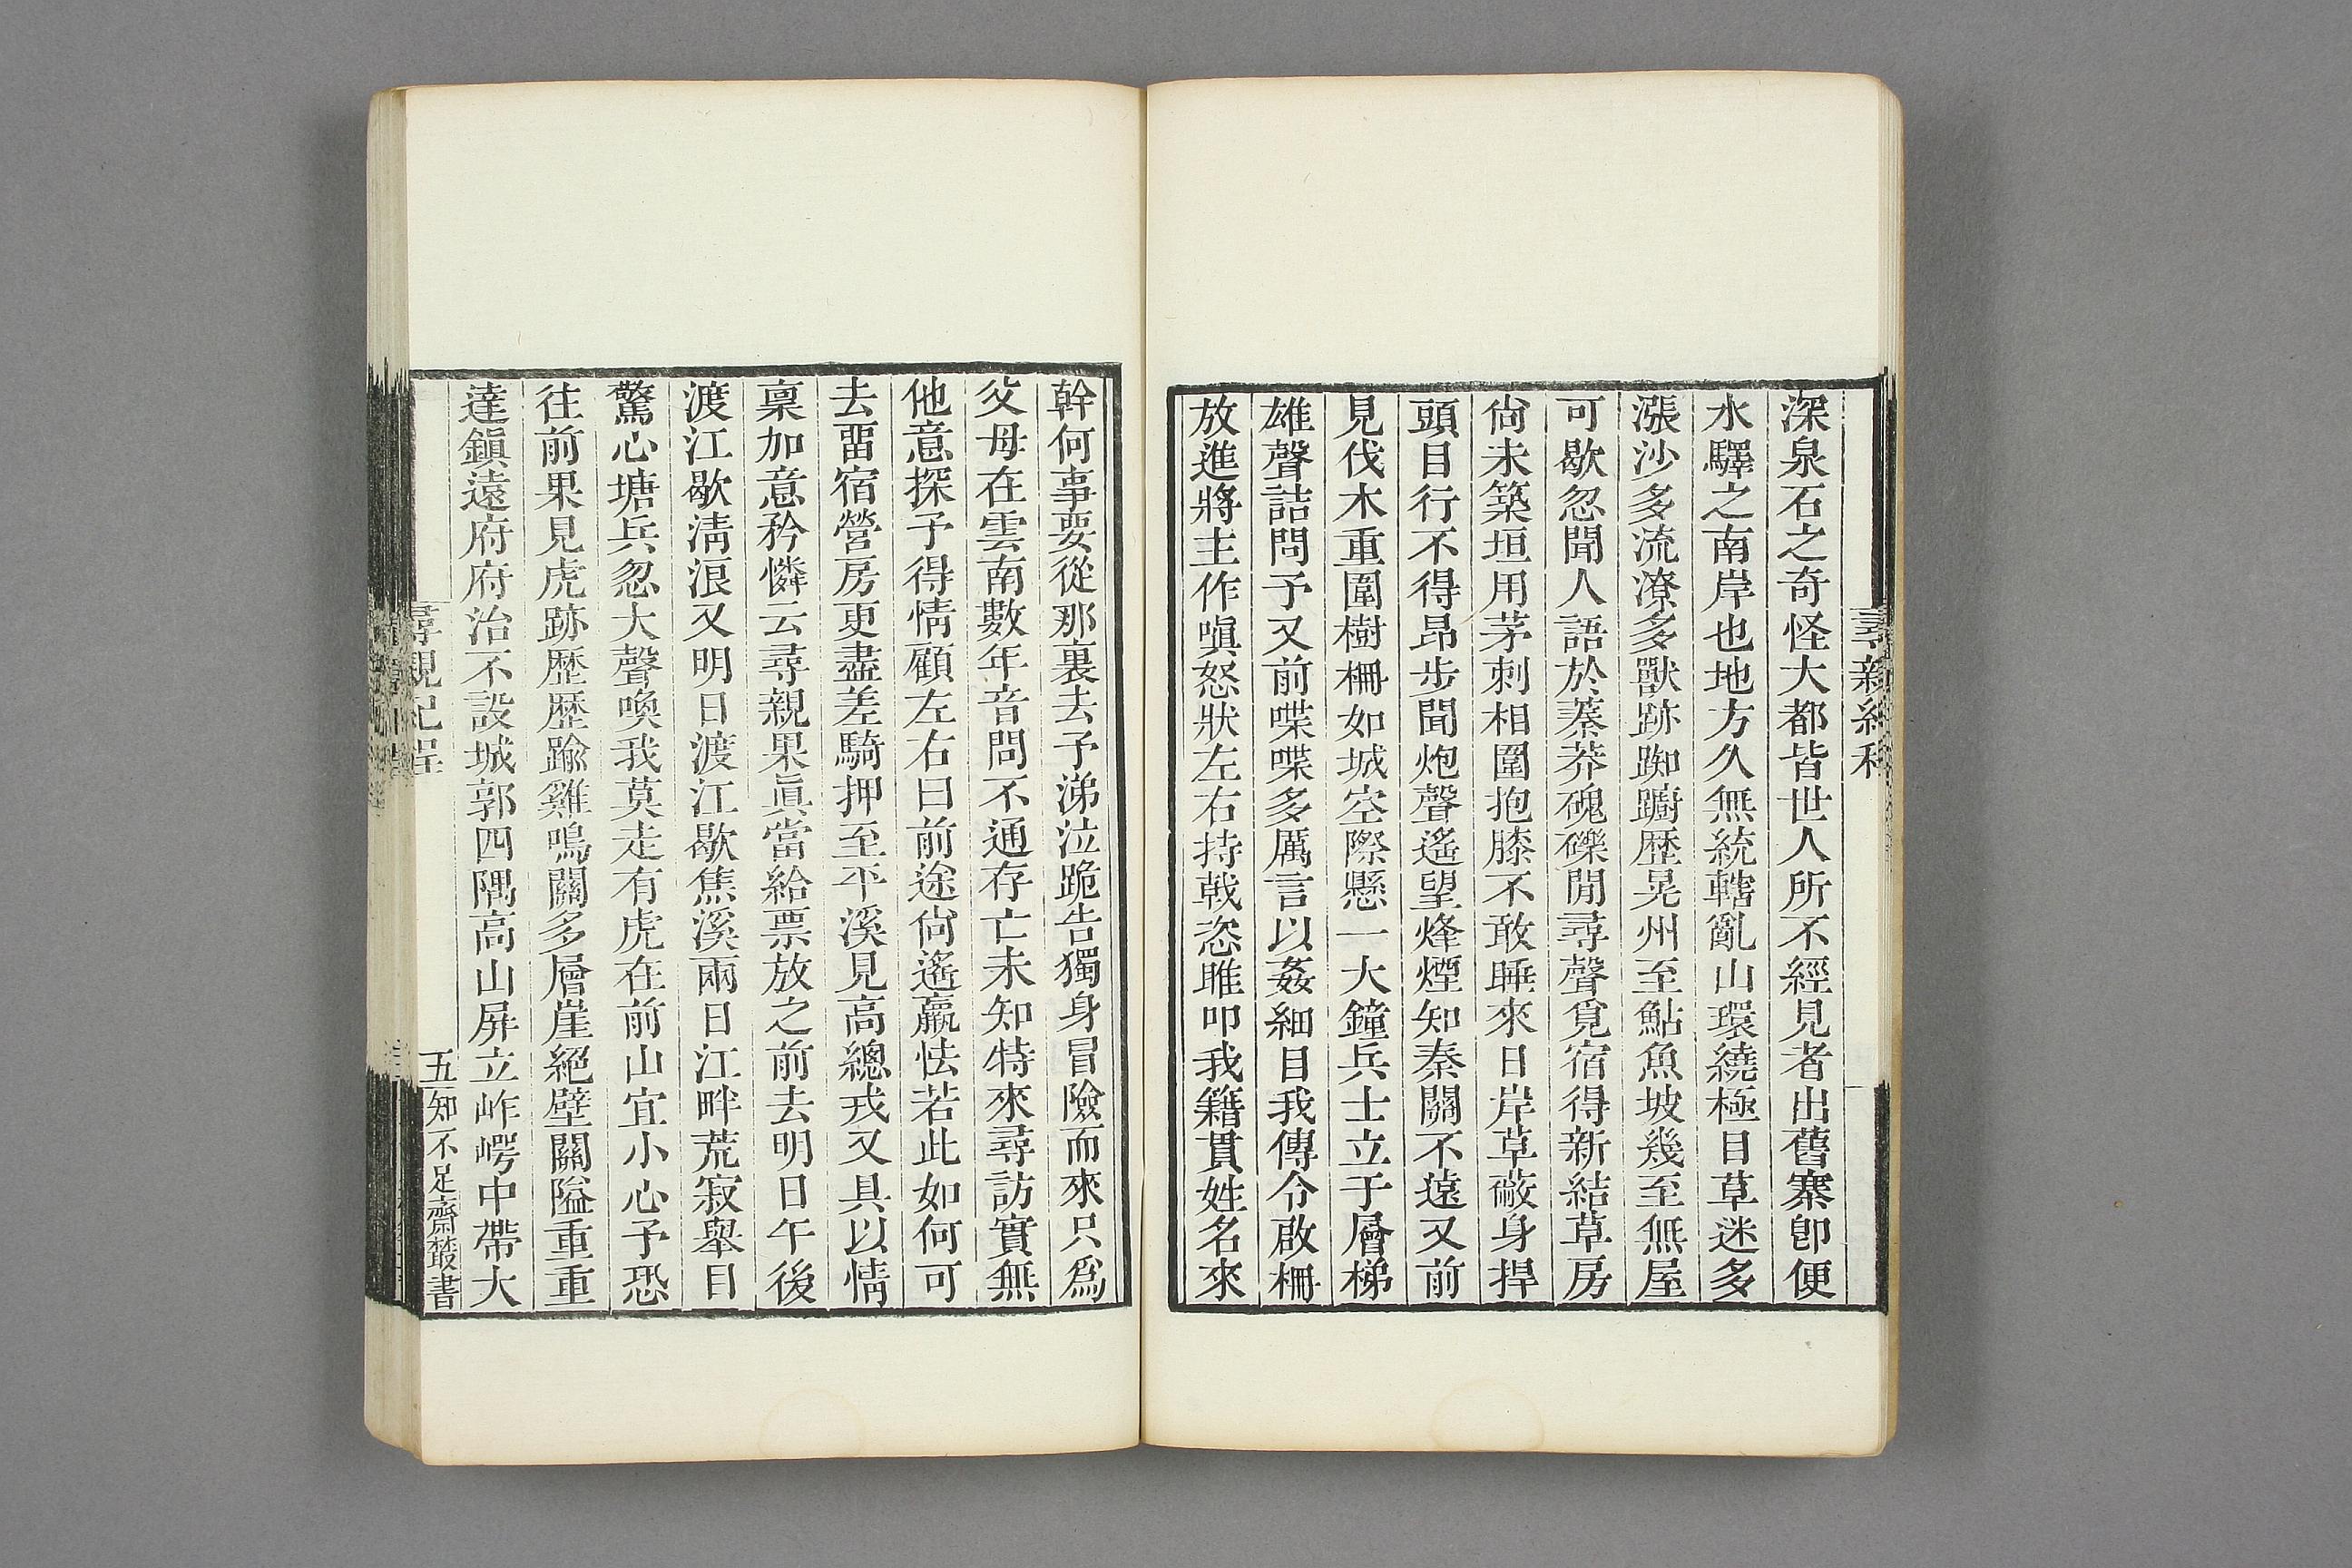 尋親紀程
深泉石之奇怪大都皆世人所不經見者出舊寨卽便
水驛之南岸也地方久無統轄亂山環繞極目草迷多
漲沙多流潦多獸跡踟躕歷晃州至鮎魚坡幾至無屋
可歇忽聞人語於蓁莽磈礫閒尋聲覓宿得新結草房
尙未築垣用茅刺相圍抱膝不敢睡來日岸草蔽身捍
頭目行不得昂步聞炮聲遙望烽煙知秦關不遠又前
見伐木重圍樹柵如城空際懸一大鐘兵士立于層梯
雄聲詰問予又前喋喋多厲言以姦細目我傳令啟柵
放進將主作嗔怒狀左右持戟恣睢叩我籍貫姓名來
幹何事要從那裏去予涕泣跪告獨身冒險而來只爲
父母在雲南數年音問不通存亡未知特來尋訪實無
他意探予得情顧左右曰前途尙遙羸怯若此如何可
去畱宿營房更盡差騎押至平溪見高總戎又具以情
稟加意矜憐云尋親果眞當給票放之前去明日午後
渡江歇淸浪又明日渡江歇焦溪兩日江畔荒寂舉目
驚心塘兵忽大聲喚我莫走有虎在前山宜小心予恐
往前果見虎跡歷歷踰雞鳴關多層崖絕壁關隘重重
達鎭遠府府治不設城郭四隅高山屏立岝崿中帶大
尋親紀程
五
知不足齋叢書